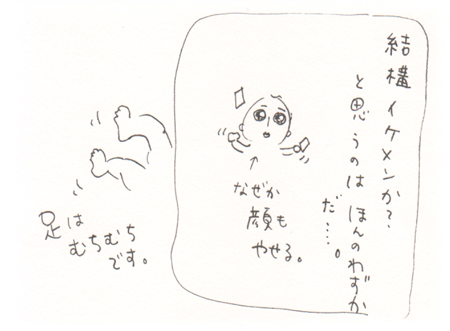 結構イケメンか?
と思うのはほんのわずか
だ…。
なぜか
顔も
やせる。
足は
むちむち
です。